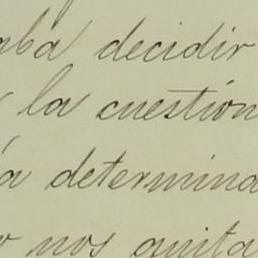 aba decidir
la cuestión
a determina
nos quita